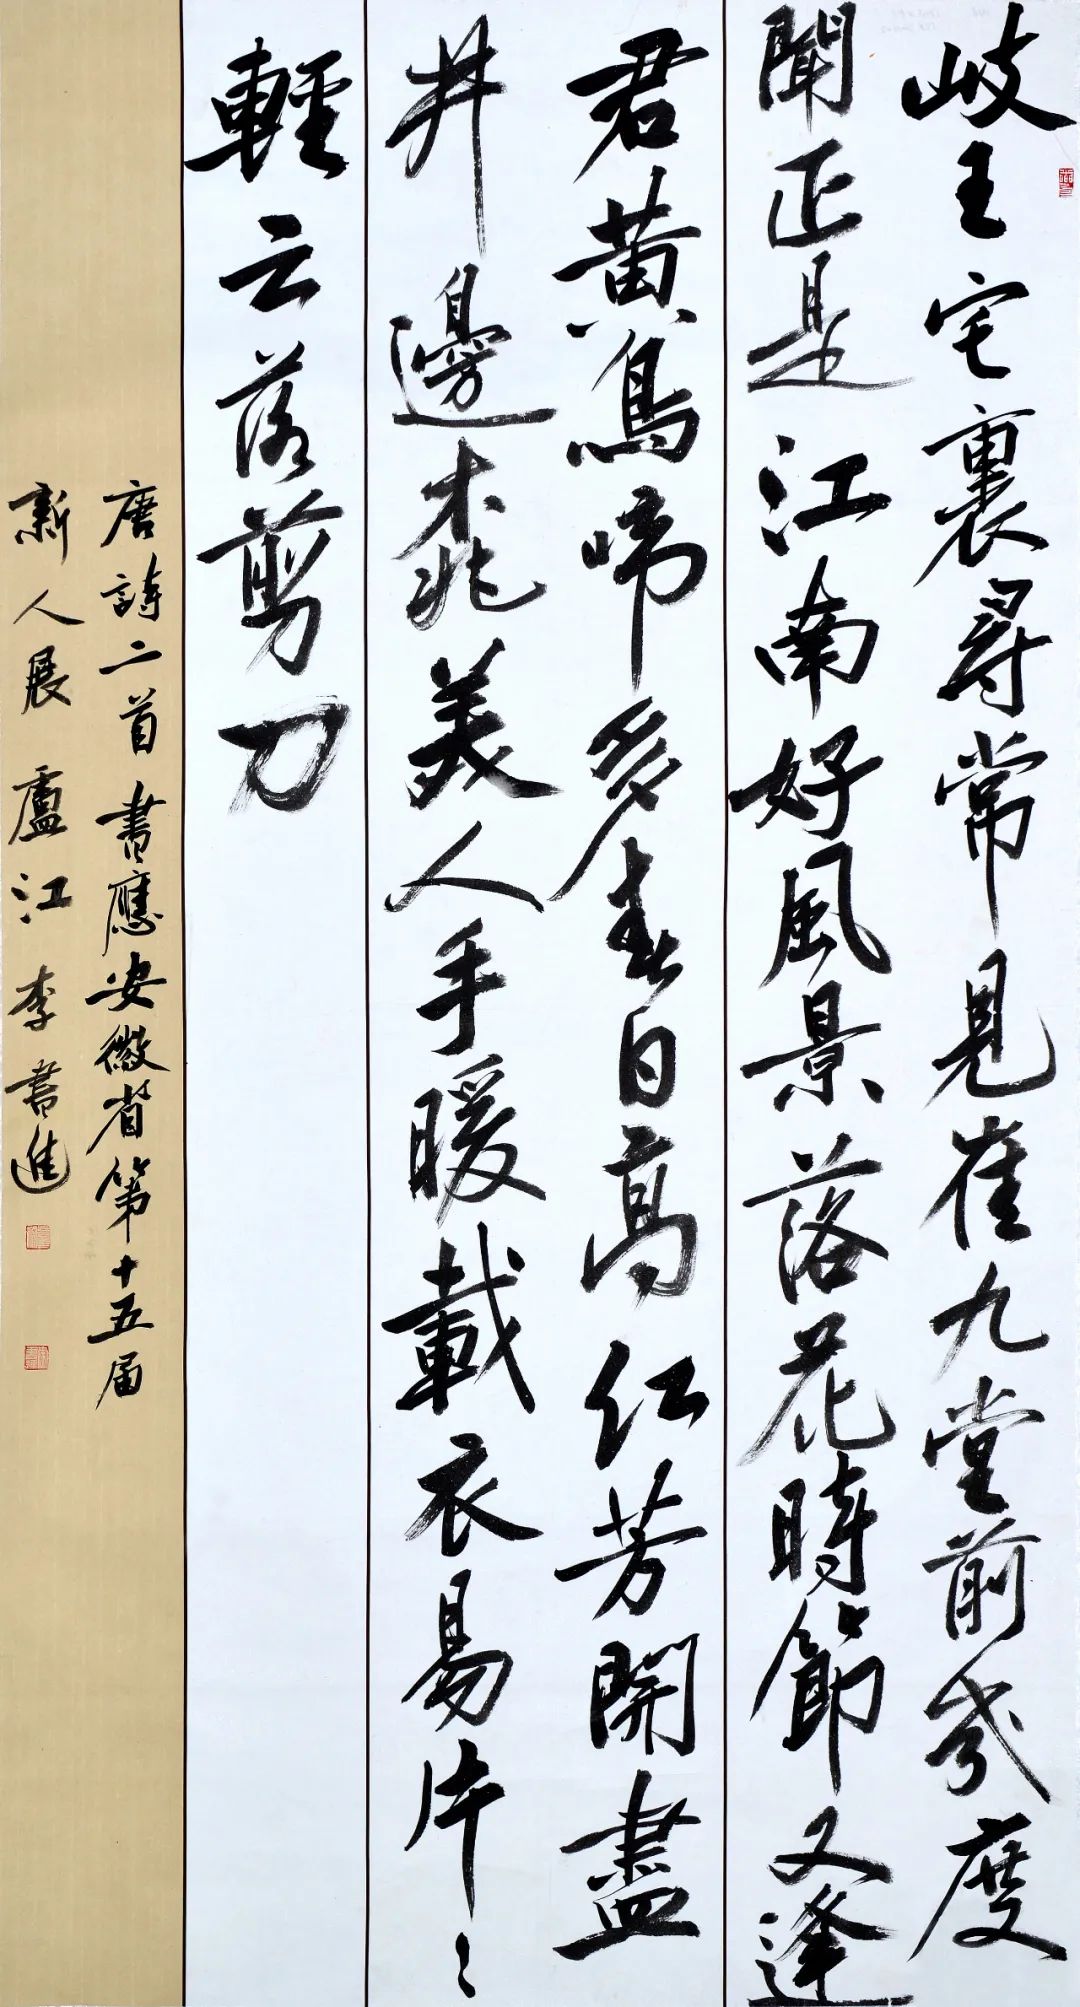 岐王宅裏尋常見崔九堂前幾度
聞正是江南好風景落花時節又逢
君黄鳥啼多春日高红芳開盡
井邊桃美人手暖載衣易片〻
輕云落剪刀
唐詩二首書應安徽省第十五届
新人展盧江李書進